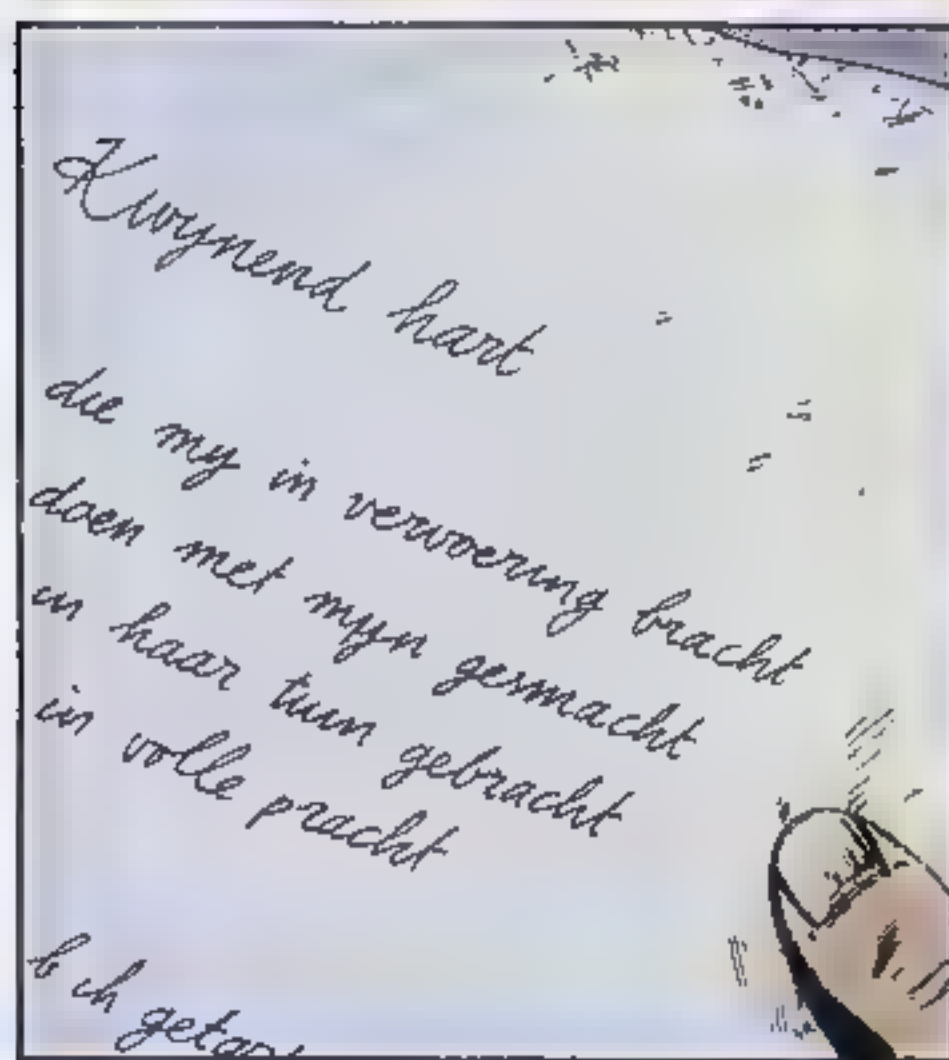 Kwynend hart
die my in vervoering bracht
doen met myn gesmacht
in haar tuin gebracht
in volle pracht
b ik